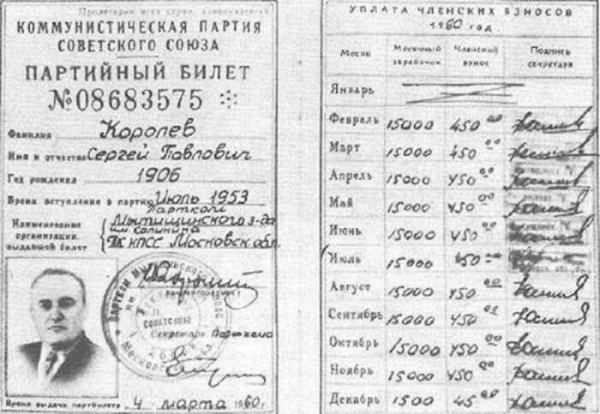 Пролетарии всех стран, соединяйтесь!
КОММУНИСТИЧЕСКАЯ ПАРТИЯ
СОВЕТСКОГО СОЮЗА
ПАРТИЙНЫЙ БИЛЕТ
№08683575
Фамилия Королев
Имя и отчество Сергей Павлович
Год рождения 1906
Время вступления в партию Июль 1953
Наименование организации, выдавшей билет
партком
Мытищинского з-да
им. Калинина
КПСС Московск. обл.
Секретарь Парткома
Время выдачи партбилета 4 марта 1960г.
УПЛАТА ЧЛЕНСКИХ ВЗНОСОВ
1960 год
Месяц Месячный заработок Членский взнос Подпись секретаря
Январь
Февраль 15000 450 00
Март 15000 450 00
Апрель 15000 450 00
Май 15000 450 00
Июнь 15000 450 00
Июль 15000 450 00
Август 15000 450 00
Сентябрь 15000 450 00
Октябрь 15000 450 00
Ноябрь 15000 450 00
Декабрь 1500 45 00